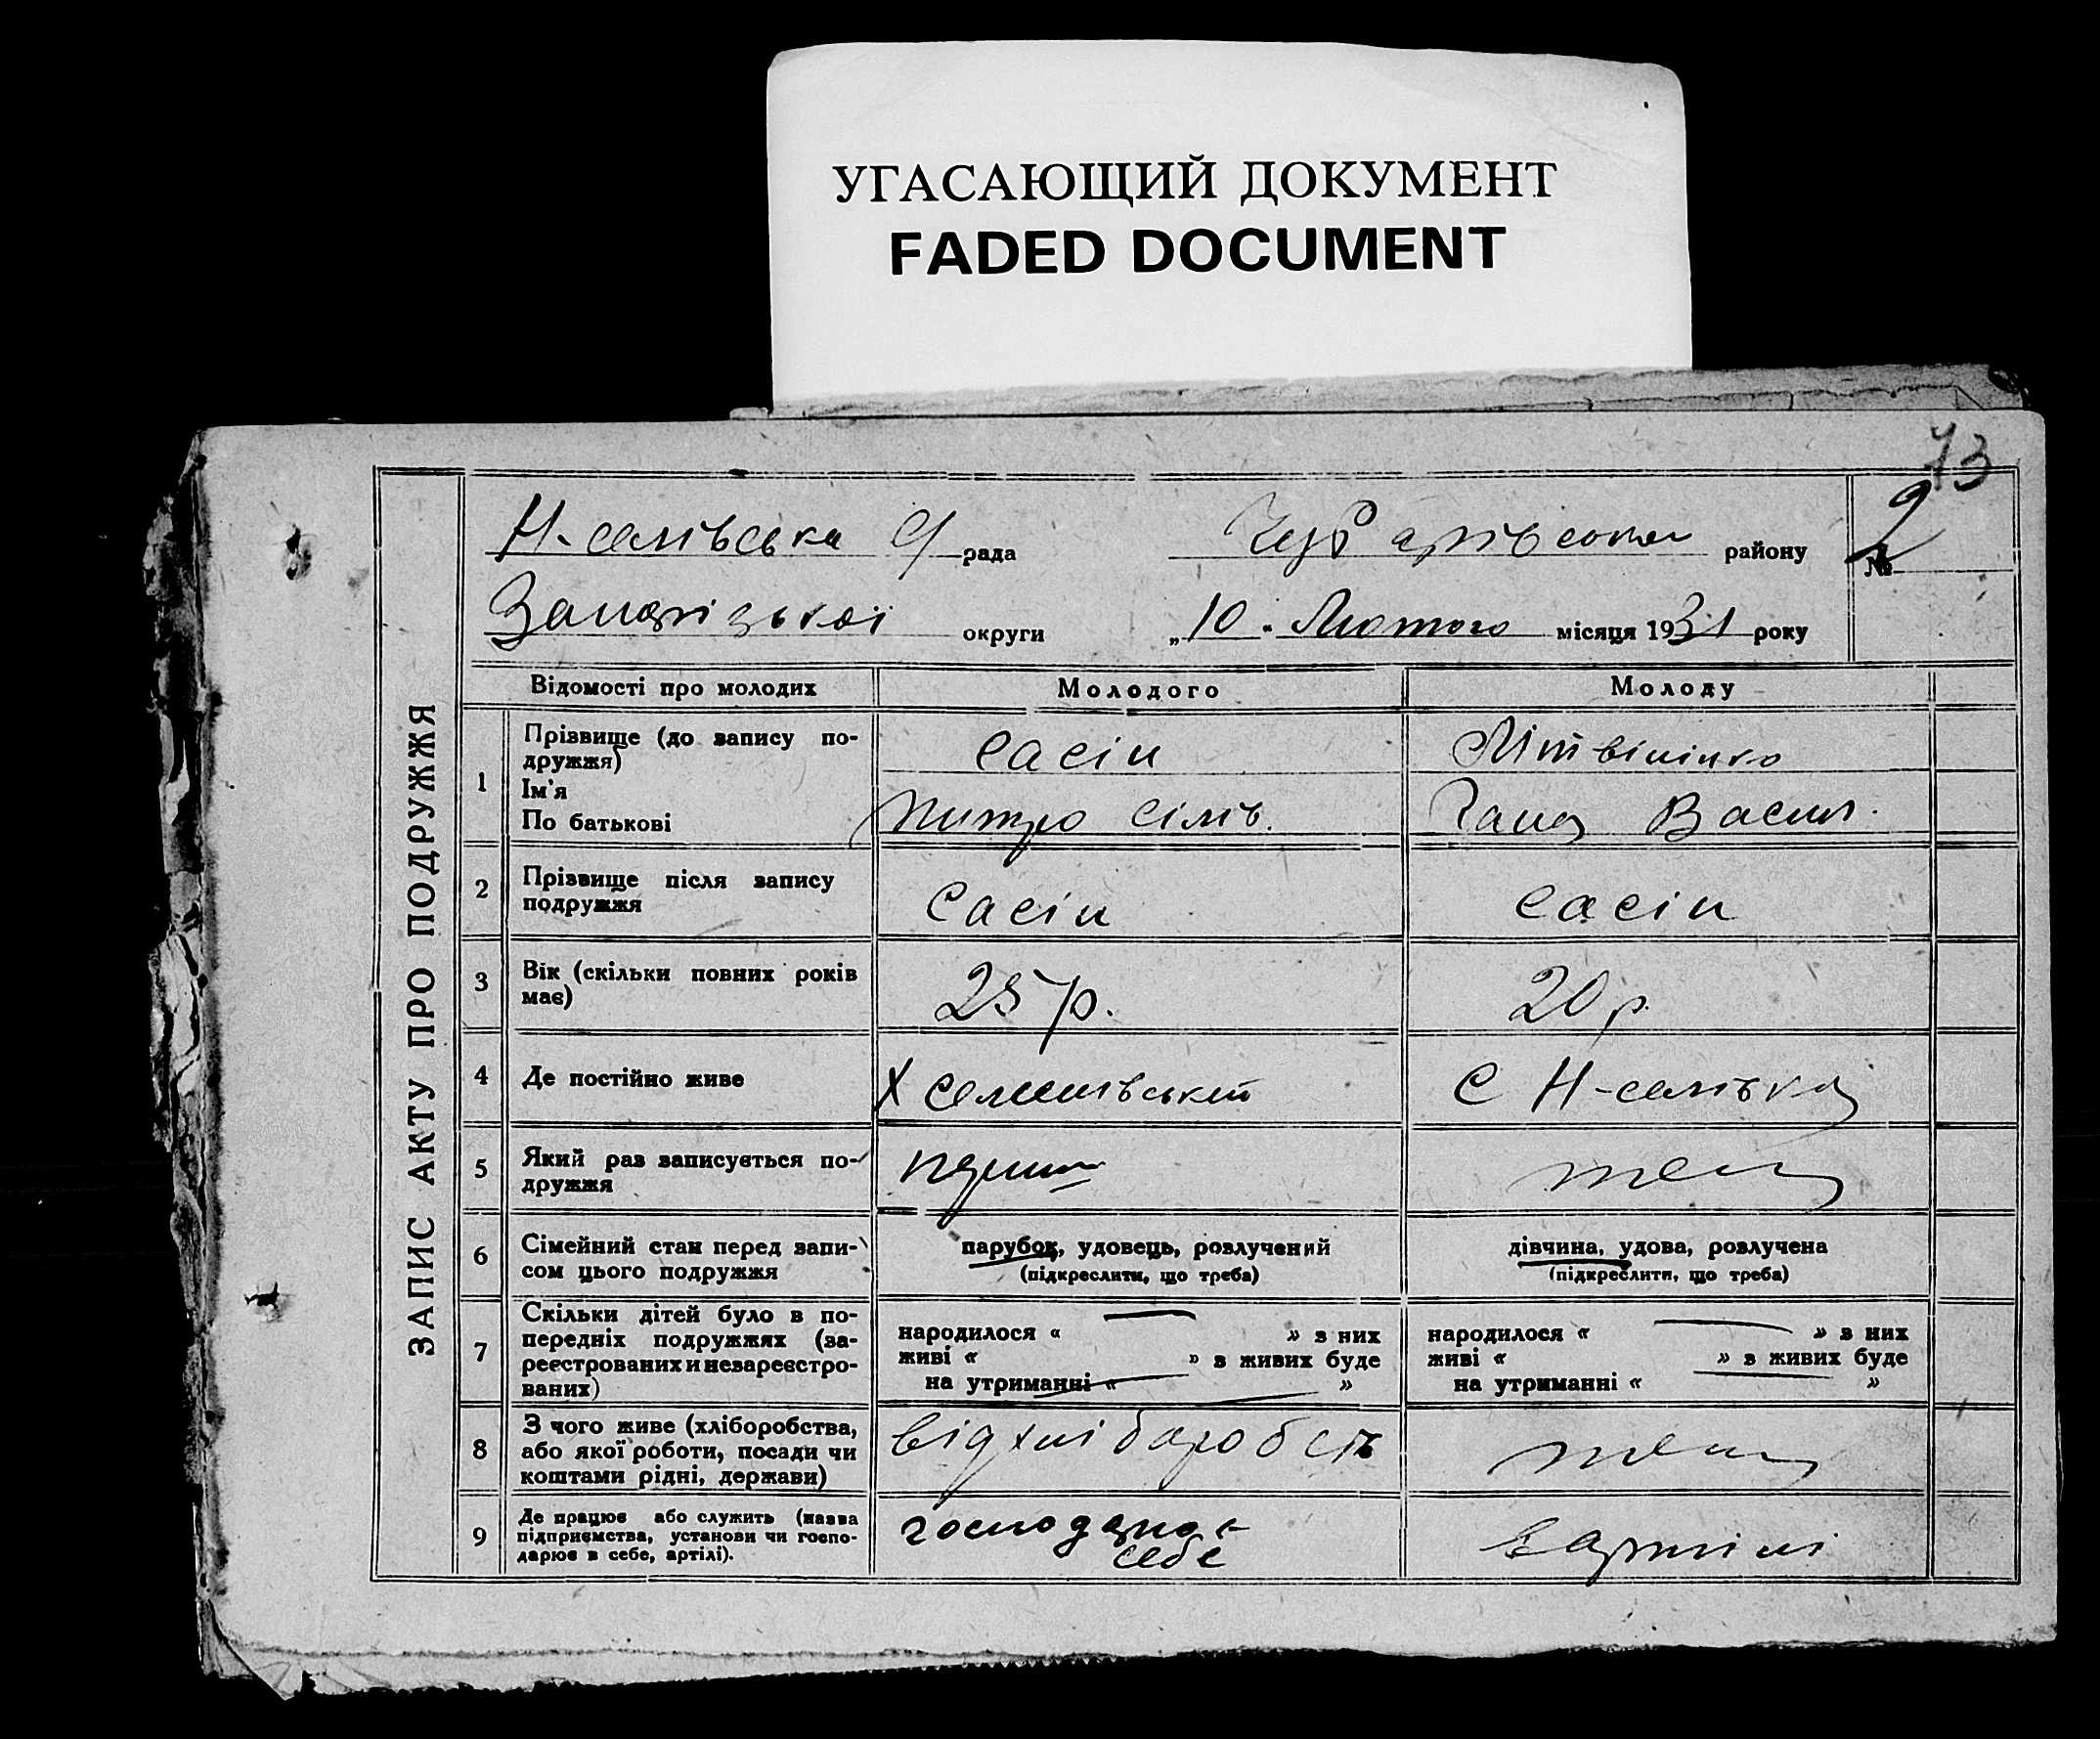 УГАСАЮЩИЙ ДОКУМЕНТ
FADED DOCUMENT
73
Н-селівська С/ рада
району
№ 2
Запорізької округи
„10“ Лютого місяця 1931 року
ЗАПИС АКТУ ПРО ПОДРУЖЖЯ
Відомості про молодих
Молодого
Молоду
1
Прізвище (до запису по-
дружжя)
Ім'я
По батькові
Сасін
Літвінінко
Питро Сілів.
Гана Васил.
2
Прізвище після запису
подружжя
Сасін
Сасін
3
Вік (скільки повних років
має)
25 р.
20 р.
4
Де постійно живе
Х
С Н-селівка
5
Який раз записується по-
дружжя
теж
6
Сімейний стан перед запи-
сом цього подружжя
парубок, удовець, розлучений
(підкреслити, що треба)
дівчина, удова, розлучена
(підкреслити, що треба)
7
Скільки дітей було в по-
передніх подружжях (за-
реєстрованих и незареєстро-
ваних)
народилося « » з них
живі « » з живих буде
на утриманні « »
народилося « » з них
живі « » з живих буде
на утриманні « »
8
З чого живе (хліборобства,
або якої роботи, посади чи
коштами рідні, держави)
від хліборобств
теж
9
Де працює або служить (назва
підприємства, установи чи госпо-
дарює в себе, артілі).
себе
в артілі